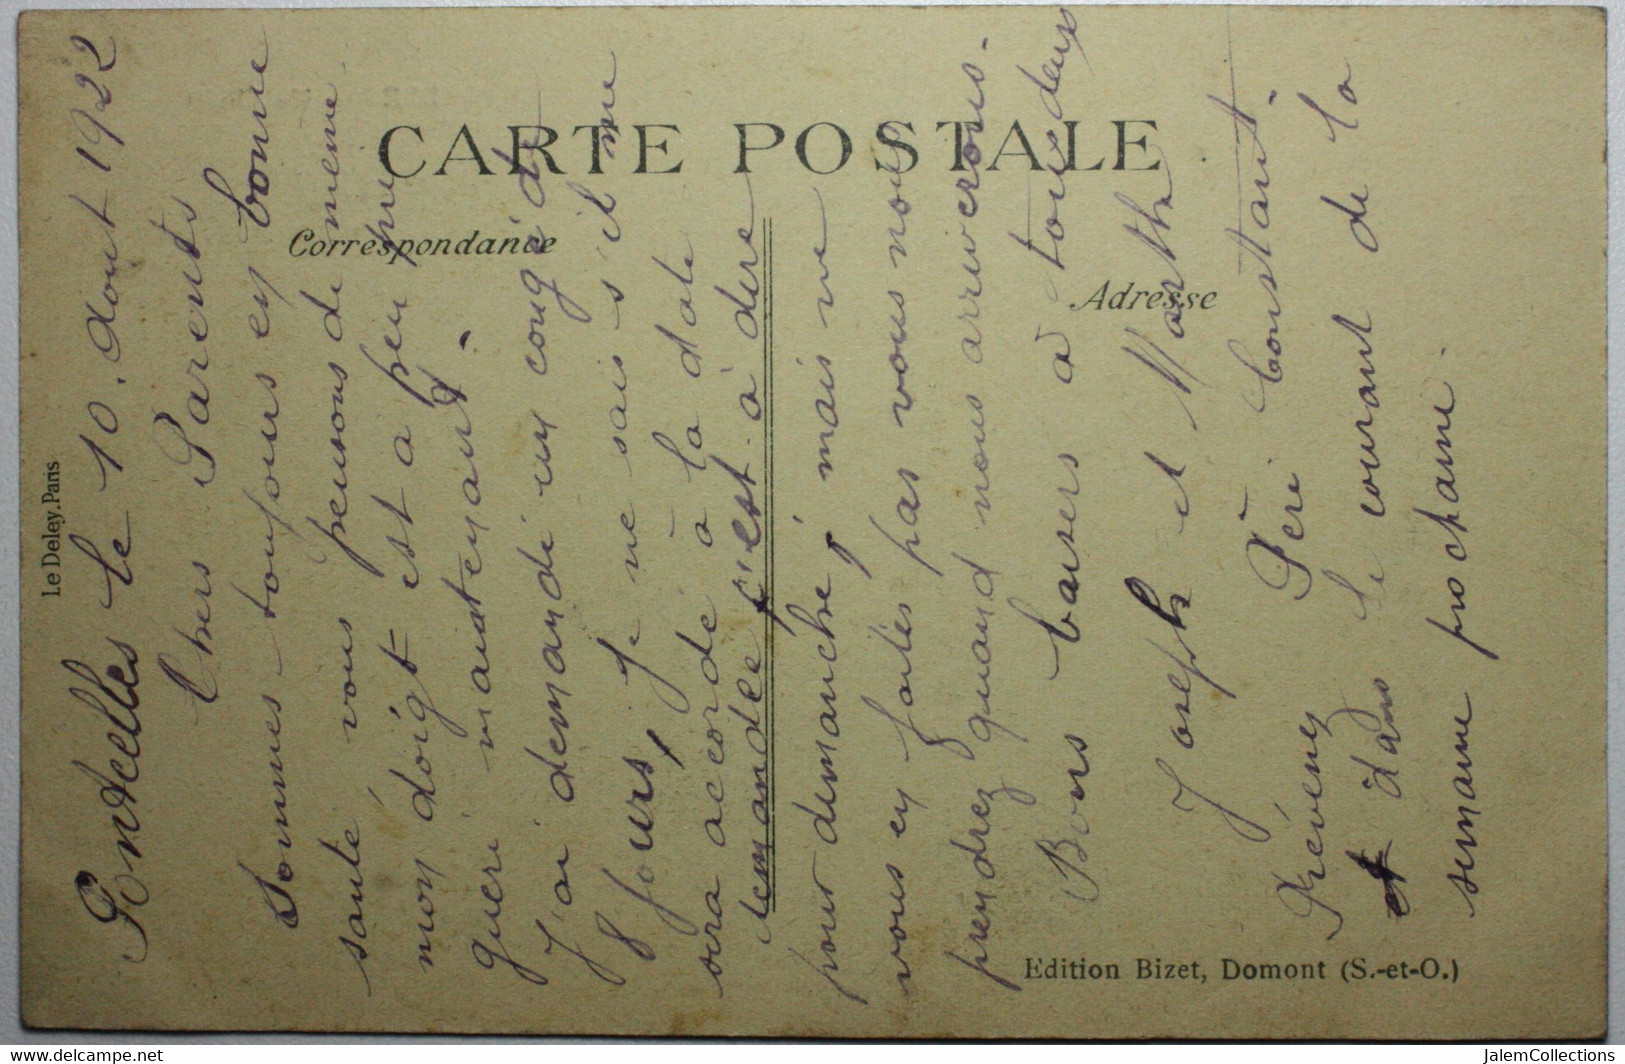 CARTE POSTALE
Correspondance
Adresse
Le Deley. Paris
Edition Bizet, Domont (S.-et-O.)
Pontcelles le 10. Aout 1922
Chers Parents
Sommes toujours en bonne
santé vous pensons de meme
mon doigt est a peu pres
gueri maintenant.
J'ai demandé un congé de
8 jours, je ne sais s'il me
sera accordé à la date
demandée c'est-à-dire
pour dimanche, mais ne
vous en faites pas vous nous
prendrez quand nous arriverons.
Bons baisers à tous deux
Joseph et Marthe
Prévenez Pere Constant.
et dans le courant de la
semaine prochaine.
www.delcampe.net
JalemCollections